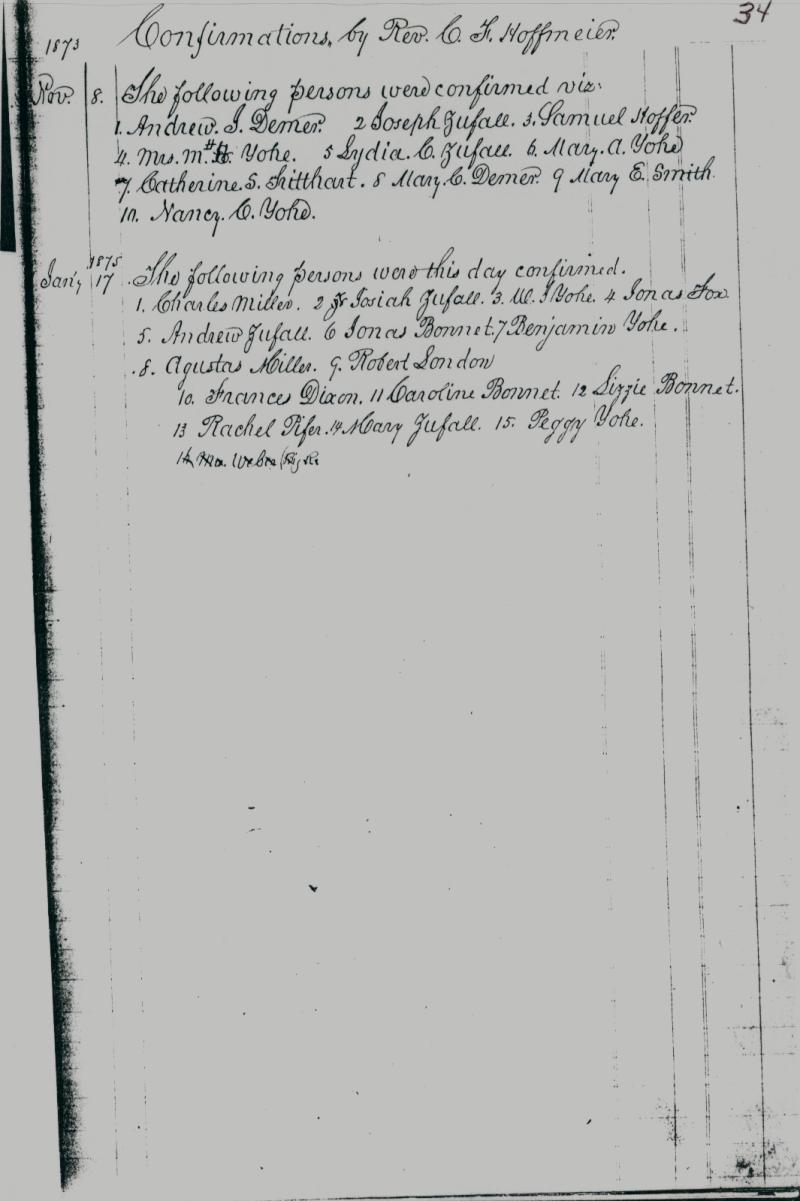 34
1873 Confirmations, by Rev. C. F. Hoffmeier.
Nov. 8. The following persons were confirmed viz.
1. Andrew. J. Demer. 2 Joseph Zufall. 3. Samuel Hoffer.
4. Mrs. Yohe. 5 Lydia. C. Zufall. 6. Mary. A. Yohe
7. Catherine. S. 8 Mary. C. Demer. 9 Mary E. Smith.
10. Nancy. C. Yohe.
1875
Jan'y 17 The following persons were this day confirmed.
1. Charles Miller. 2 Josiah Zufall. 3. W. J Yohe. 4 Jonas Fox
5. Andrew Zufall. 6 Jonas Bonnet. 7 Benjamin Yohe.
8. Agustas Miller. 9. Robert London
10. Frances Dixon. 11 Caroline Bonnet. 12 Lizzie Bonnet.
13 Rachel Pifer. 14 Mary Zufall. 15. Peggy Yohe.